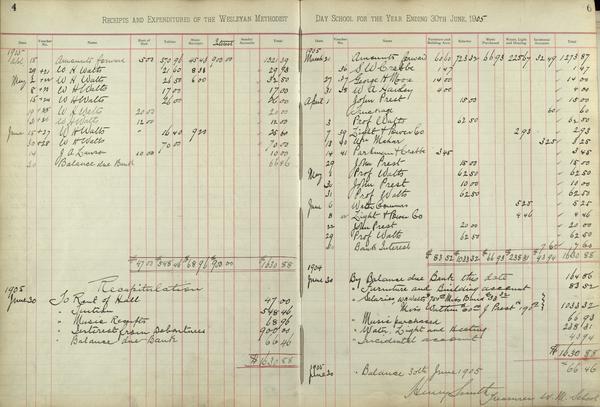 4
RECEIPTS AND EXPENDITURES OF THE WESLEYAN METHODIST
Date Voucher No. Name Rent of Hall Tuition Music Receipts Interest Sundry Accounts Total
1905
Amounts forward 5 00 570 96 45 43 900 00 1521 39
29 W H Watts 21 60 8 33 29 93
May 2 W H Watts 26 50 6 00 32 50
8 W H Watts 17 00 17 00
15 W H Watts 26 00 26 00
W H Watts 20 00 20 00
W H Watts 12 00 12 00
June 15 W H Watts 16 40 9 20 25 60
30 W H Watts 70 00 70 00
J A Lawson 10 00 10 00
30 Balance due Bank 66 46
$47 00 $548 46 $68 96 $900 00 $1630 88
1905
Recapitulation
June 30 To Rent of Hall 47 00
" Tuition 548 46
" Music Receipts 68 96
" Interest from Debentures 900 00
" Balance due Bank 66 46
$1630 88
DAY SCHOOL FOR THE YEAR ENDING 30TH JUNE, 1905
6
Date Voucher No. Name Furniture and Building Acct. Salaries Music Purchased Water, Light and Heating Incidental Accounts Total
1905
March 21 Amounts forward 66 60 723 32 66 93 225 67 32 49 1273 87
36 S W Crabbe 1 47 1 47
27 37 George H Moss 14 00 14 00
31 38 W A Hardey 4 00 4 00
April 1 John Prest 15 00 15 00
Truckage 60 60
3 Prof Watts 62 50 62 50
7 39 Light & Power Co 2 93 2 93
13 40 3 25 3 25
14 41 Parkman & Crabbe 3 45 3 45
29 John Prest 15 00 15 00
May 1 Prof Watts 62 50 62 50
John Prest 10 00 10 00
31 Prof Watts 62 50 62 50
June 6 Water Commrs 5 25 5 25
8 Light & Power Co 4 46 4 46
22 John Prest 20 00 20 00
29 Prof Watts 62 50 62 50
30 Bank Interest 7 60 7 60
$83 52 $1033 32 $66 93 $238 31 $43 94 1630 88
1904
June 30 By Balance due Bank this date 164 86
" Furniture and Building account 83 52
" Salaries
1033 32
" Music purchased 66 93
" Water, Light and Heating 238 31
" Incidental account 43 94
$1630 88
1905
June 30 Balance 30th June 1905 66 46
Henry Smith Treasurer W. M. School